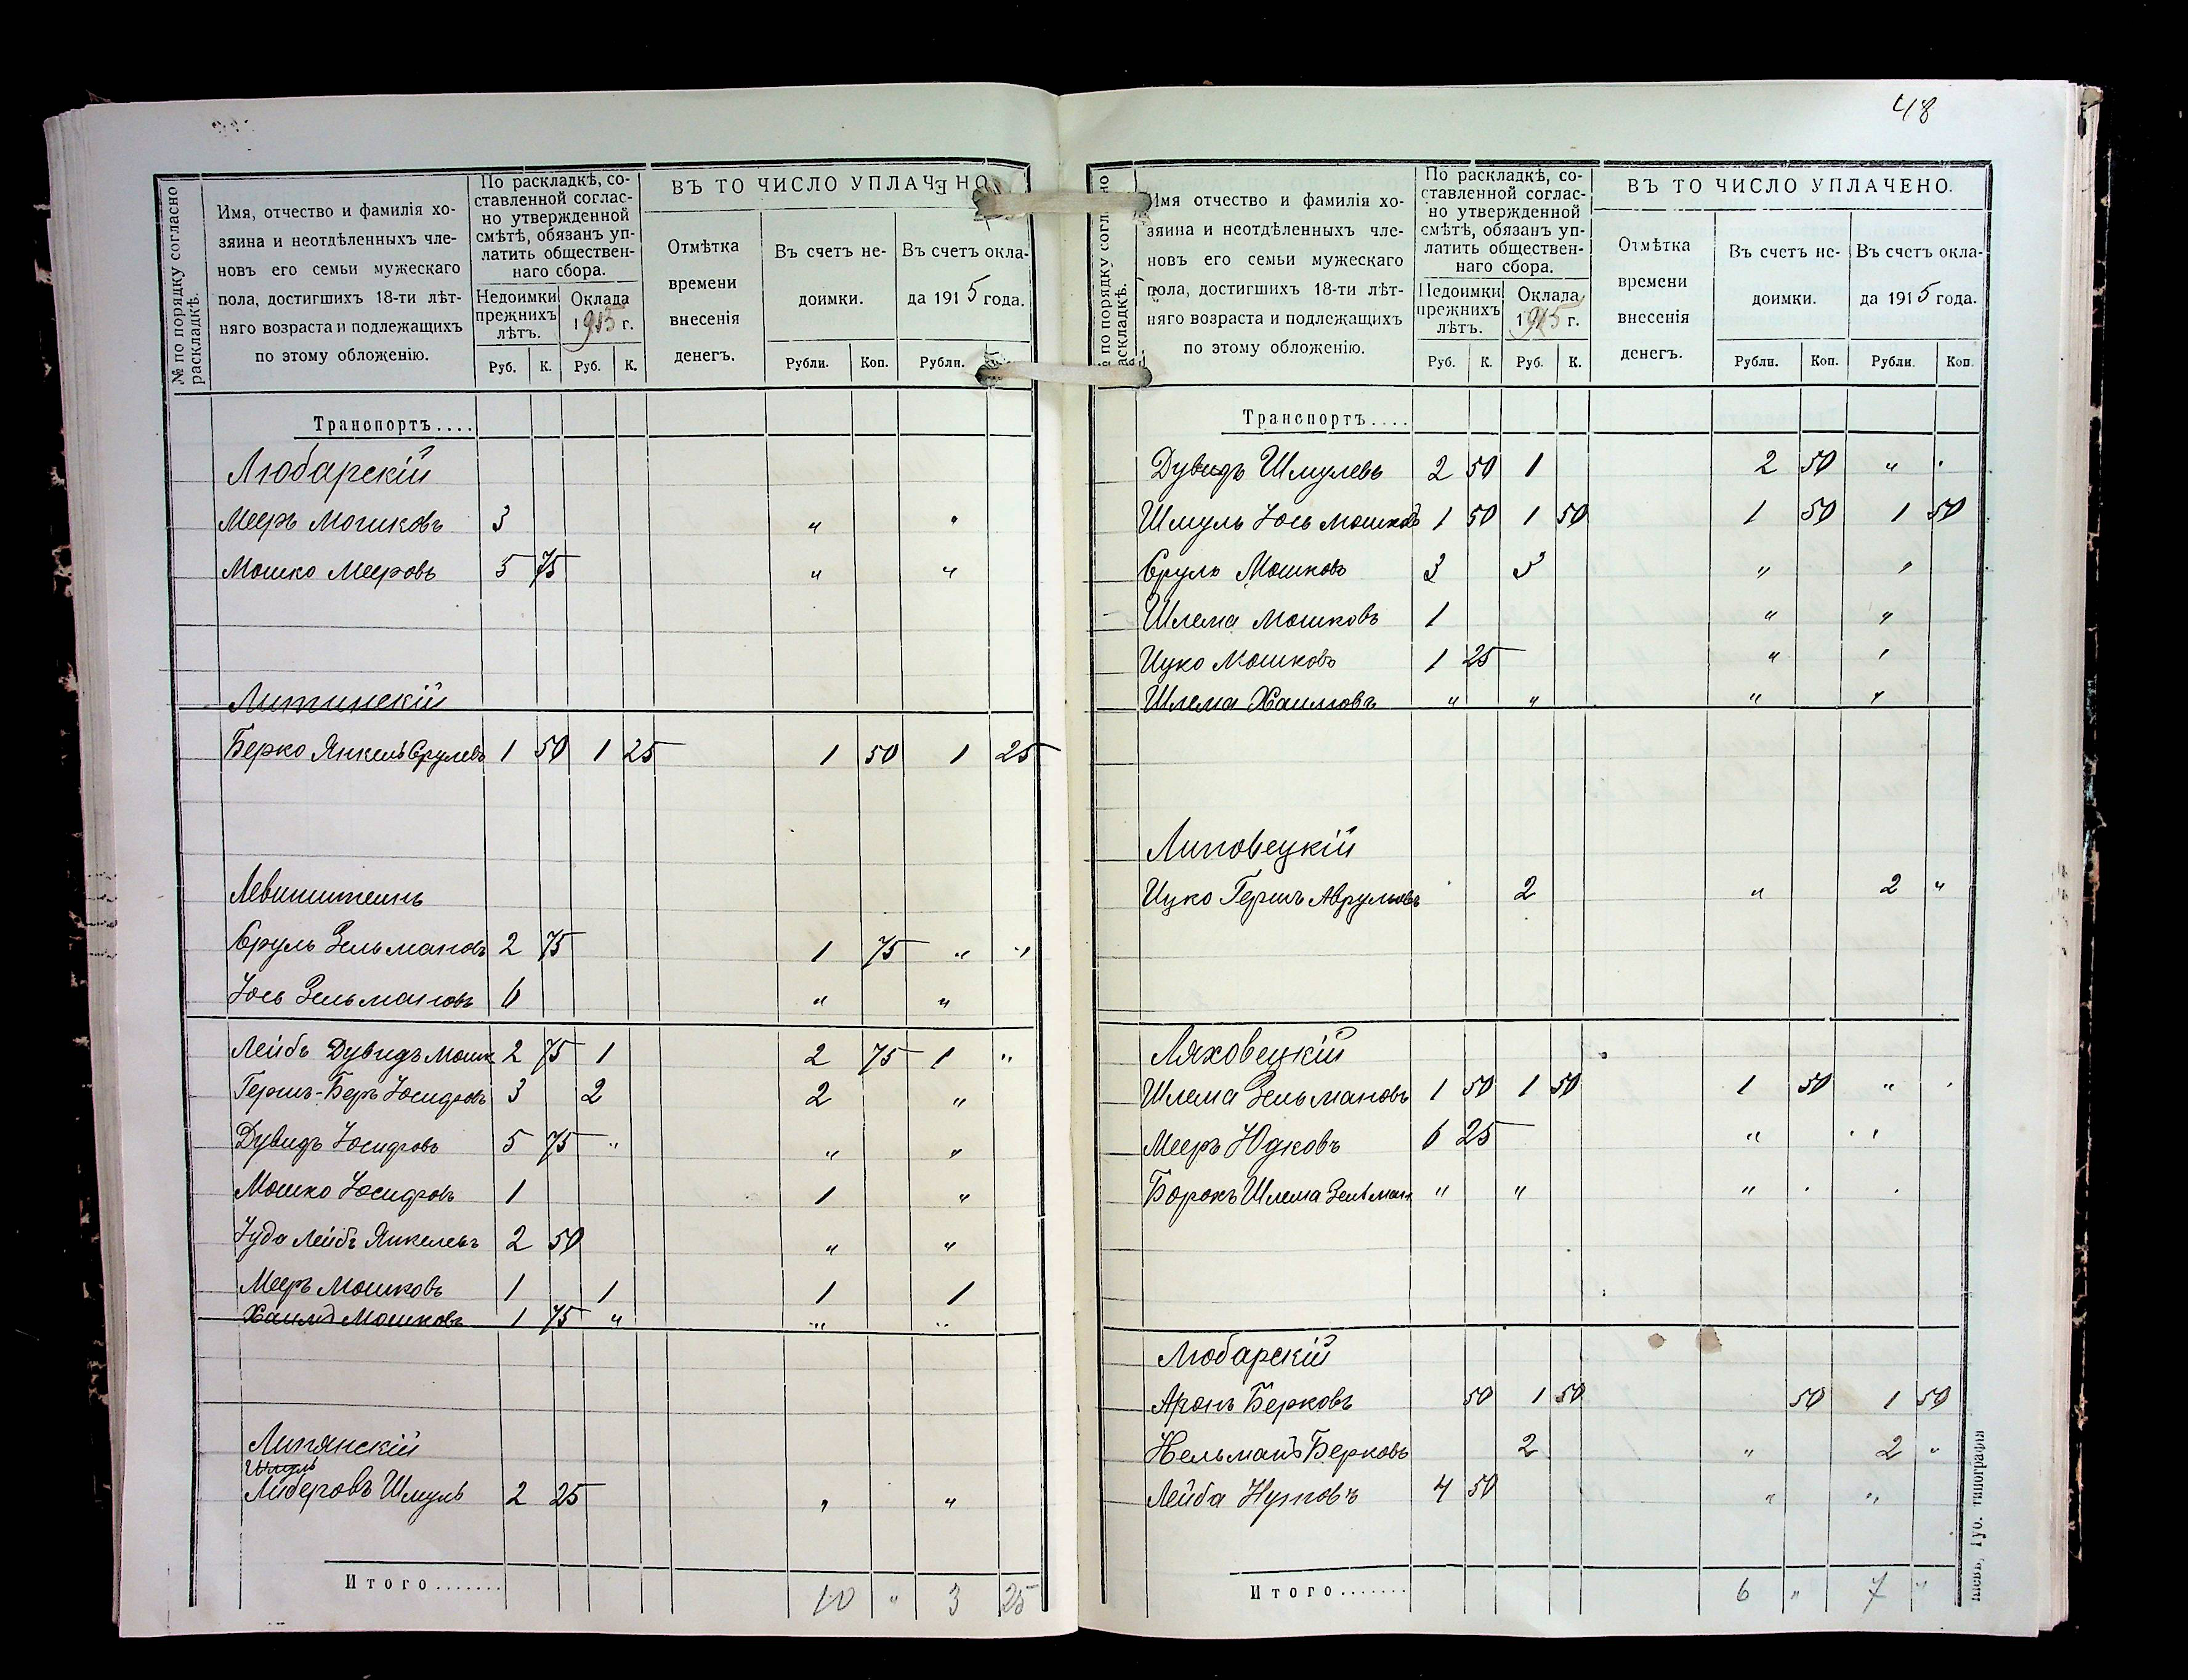 № по порядку согласно раскладкѣ.
Имя, отчество и фамилія хо-
зяина и неотдѣленныхъ чле-
новъ его семьи мужескаго
пола, достигшихъ 18-ти лѣт-
няго возраста и подлежащихъ
по этому обложенію.
По раскладкѣ, со-
ставленной соглас-
но утвержденной
смѣтѣ, обязанъ уп-
латить обществен-
наго сбора.
Недоимки прежнихъ лѣтъ.
Оклада 1915 г.
Руб. К. Руб. К.
ВЪ ТО ЧИСЛО УПЛАЧЕНО
Отмѣтка
времени
внесенія
денегъ.
Въ счетъ не-
доимки.
Въ счетъ окла-
да 1915 года.
Рубли. Коп. Рубли.
Транспортъ....
Любарскій
Мееръ Мошковъ 3 " "
Мошко Мееровъ 5 75 " "
Литинскій
Берко Янкель Срулевъ 1 50 1 25 1 50 1 25
Левинштейнъ
Сруль Зельмановъ 2 75 1 75 " "
Іось Зельмановъ 6 " "
Лейбъ Дувидъ Мошк 2 75 1 2 75 1 "
Гершъ-Беръ Іосифовъ 3 2 2 "
Дувидъ Іосифовъ 5 75 " " "
Мошко Іосифовъ 1 1 "
Іуда Лейбъ Янкелевъ 2 50 " "
Мееръ Мошковъ 1 1 1 1
Хаимъ Мошковъ 1 75 " " "
Липянскій
Шмуль
Либеровъ Шмуль 2 25 " "
Итого....... 10 " 3 25
48
по порядку согласно раскладкѣ.
Имя отчество и фамилія хо-
зяина и неотдѣленныхъ чле-
новъ его семьи мужескаго
пола, достигшихъ 18-ти лѣт-
няго возраста и подлежащихъ
по этому обложенію.
По раскладкѣ, со-
ставленной соглас-
но утвержденной
смѣтѣ, обязанъ уп-
латить обществен-
наго сбора.
Недоимки прежнихъ лѣтъ.
Оклада 1915 г.
Руб. К. Руб. К.
ВЪ ТО ЧИСЛО УПЛАЧЕНО.
Отмѣтка
времени
внесенія
денегъ.
Въ счетъ не-
доимки.
Въ счетъ окла-
да 1915 года.
Рубли. Коп. Рубли. Коп.
Транспортъ....
Дувидъ Шмулевъ 2 50 1 2 50 "
Шмуль Іось Мошков 1 50 1 50 1 50 1 50
Сруль Мошковъ 3 3 " "
Шлема Мошковъ 1 " "
Ицко Мошковъ 1 25 " "
Шлема Хаимовъ " " " "
Липовецкій
Ицко Гершъ Аврумовъ 2 " 2 "
Ляховецкій
Шлема Зельмановъ 1 50 1 50 1 50 "
Мееръ Юдковъ 6 25 " "
Борохъ Шлема Зельман " " "
Любарскій
Аронъ Берковъ 50 1 50 50 1 50
Кельманъ Берковъ 2 " 2 "
Лейба 4 50 " "
Итого....... 6 " 7 "
Кіевъ, Губ. типографія